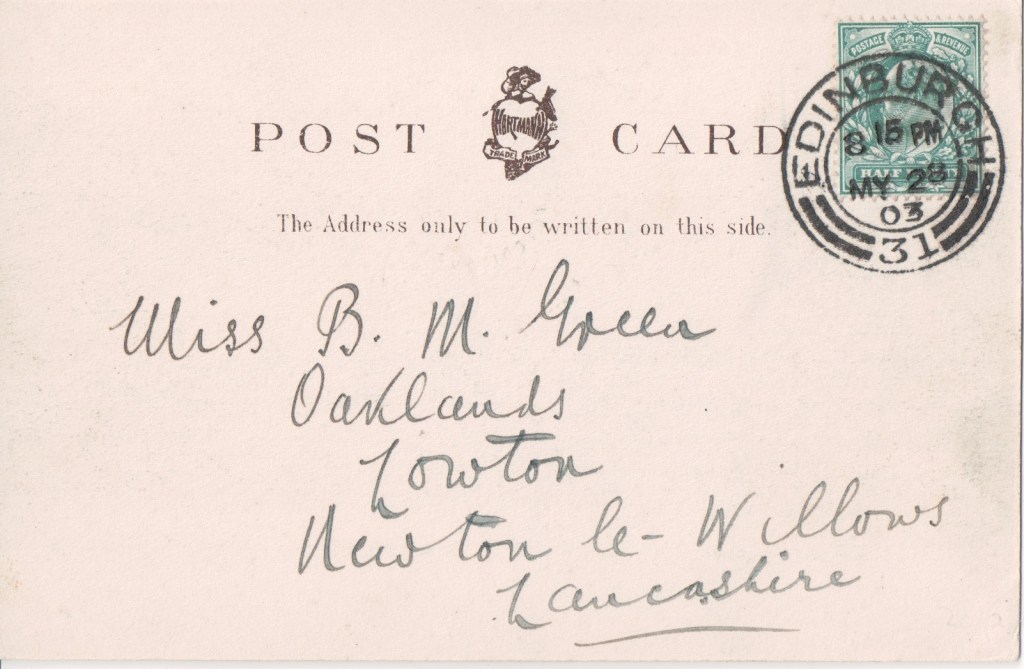 POSTAGE & REVENUE
POST CARD
HARTMANN
TRADE MARK
EDINBURGH
8 15 PM
MY 28
03
31
HALF
The Address only to be written on this side.
Miss B. M. Green
Oaklands
Lowton
Newton le-Willows
Lancashire